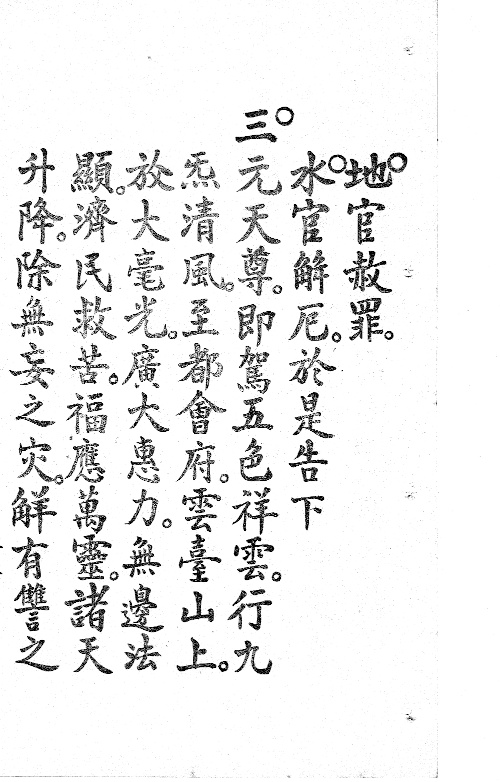 地官赦罪。
水官解厄。於是告下
三元天尊。即駕五色祥雲。行九
炁清風。至都會府。雲臺山上。
放大毫光。廣大惠力。無邊法
顯。濟民救苦。福應萬靈。諸天
升降。除無妄之灾。解有讐之